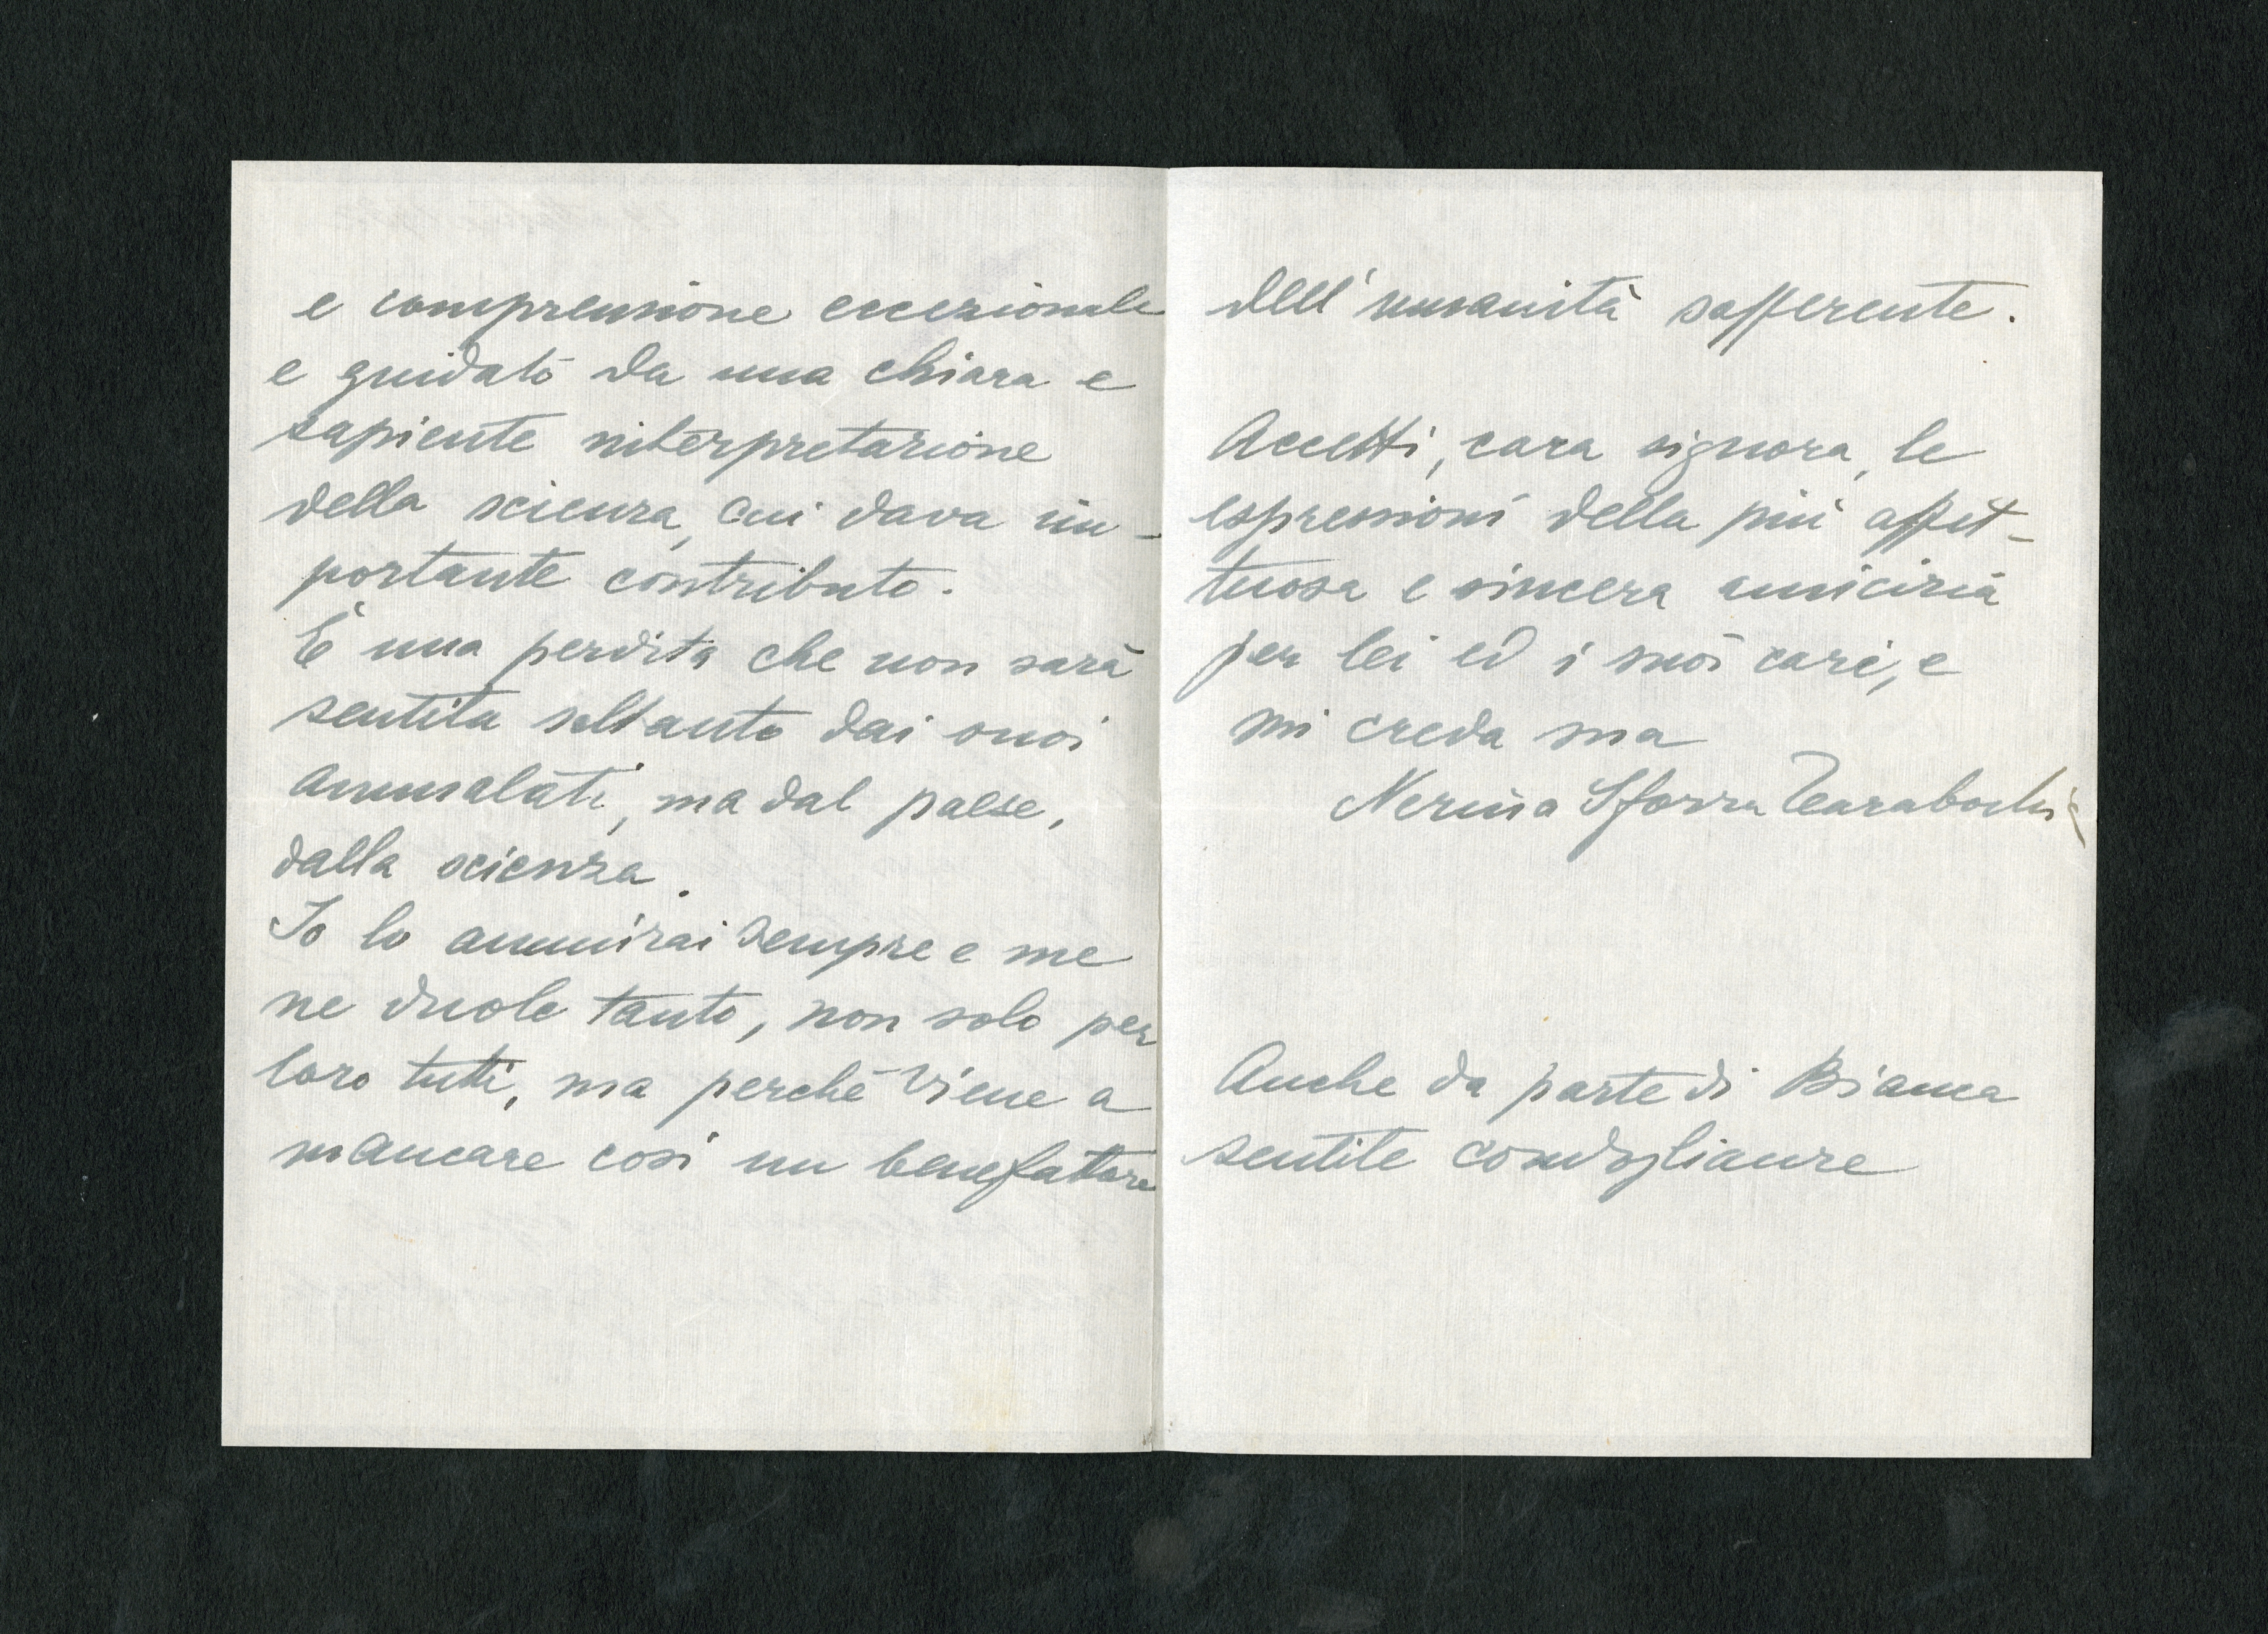 e comprensione eccezionale
e guidato da una chiara e
sapiente interpretazione
della scienza, cui dava im-
portante contributo.
È una perdita che non sarà
sentita soltanto dai suoi
ammalati, ma dal paese,
dalla scienza.
Io lo ammirai sempre e me
ne duole tanto, non solo per
loro tutti, ma perchè viene a
mancare così un benefattore
dell'umanità sofferente.
Accetti, cara signora, le
espressioni della più affet-
tuosa e sincera amicizia
per lei ed i suoi cari, e
mi creda sua
Nerina Sforza Tarabochia
Anche da parte di Bianca
sentite condoglianze